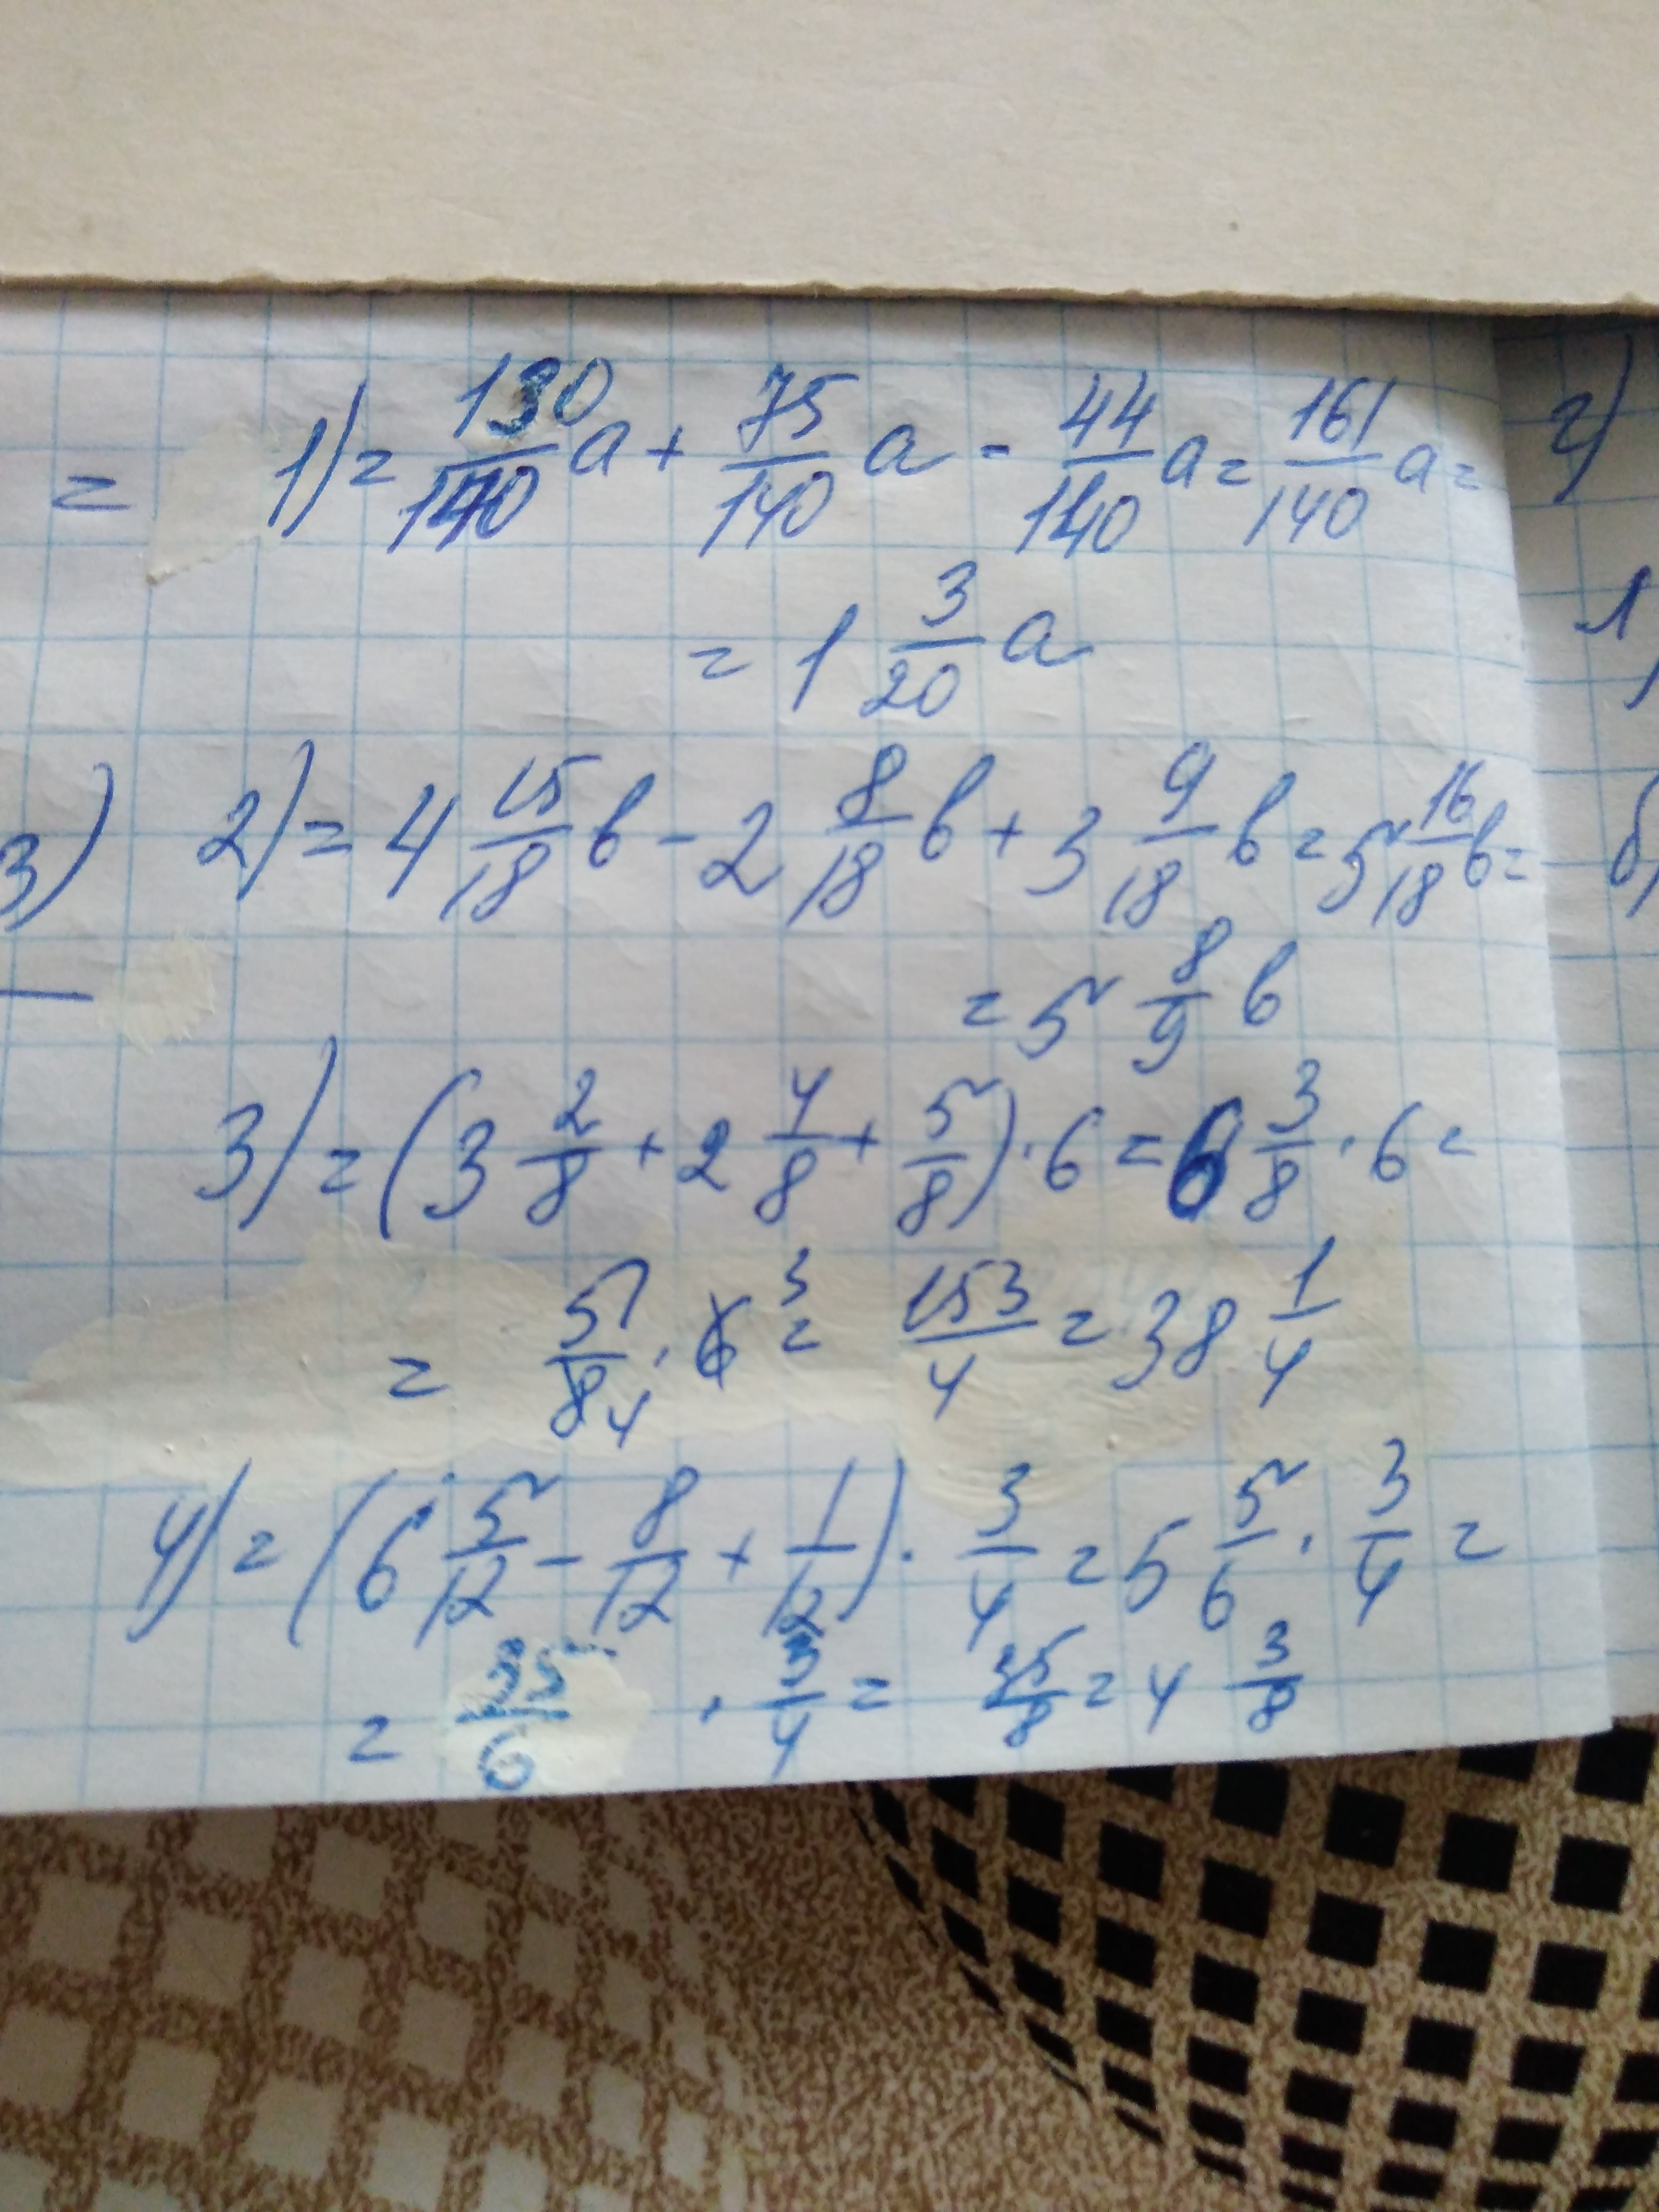 = 1) = 130/140 a + 75/140 a - 44/140 a = 161/140 a = 2)
= 1 3/20 a
3) 2) = 4 15/18 b - 2 8/18 b + 3 9/18 b = 5 16/18 b =
= 5 8/9 b
3) = (3 2/8 + 2 4/8 + 5/8) · 6 = 6 3/8 · 6 =
= 51/8 4 · 6 3 = 153/4 = 38 1/4
4) = (6 5/12 - 8/12 + 1/12) · 3/4 = 5 5/6 · 3/4 =
= 35/6 · 3/4 = 35/8 = 4 3/8